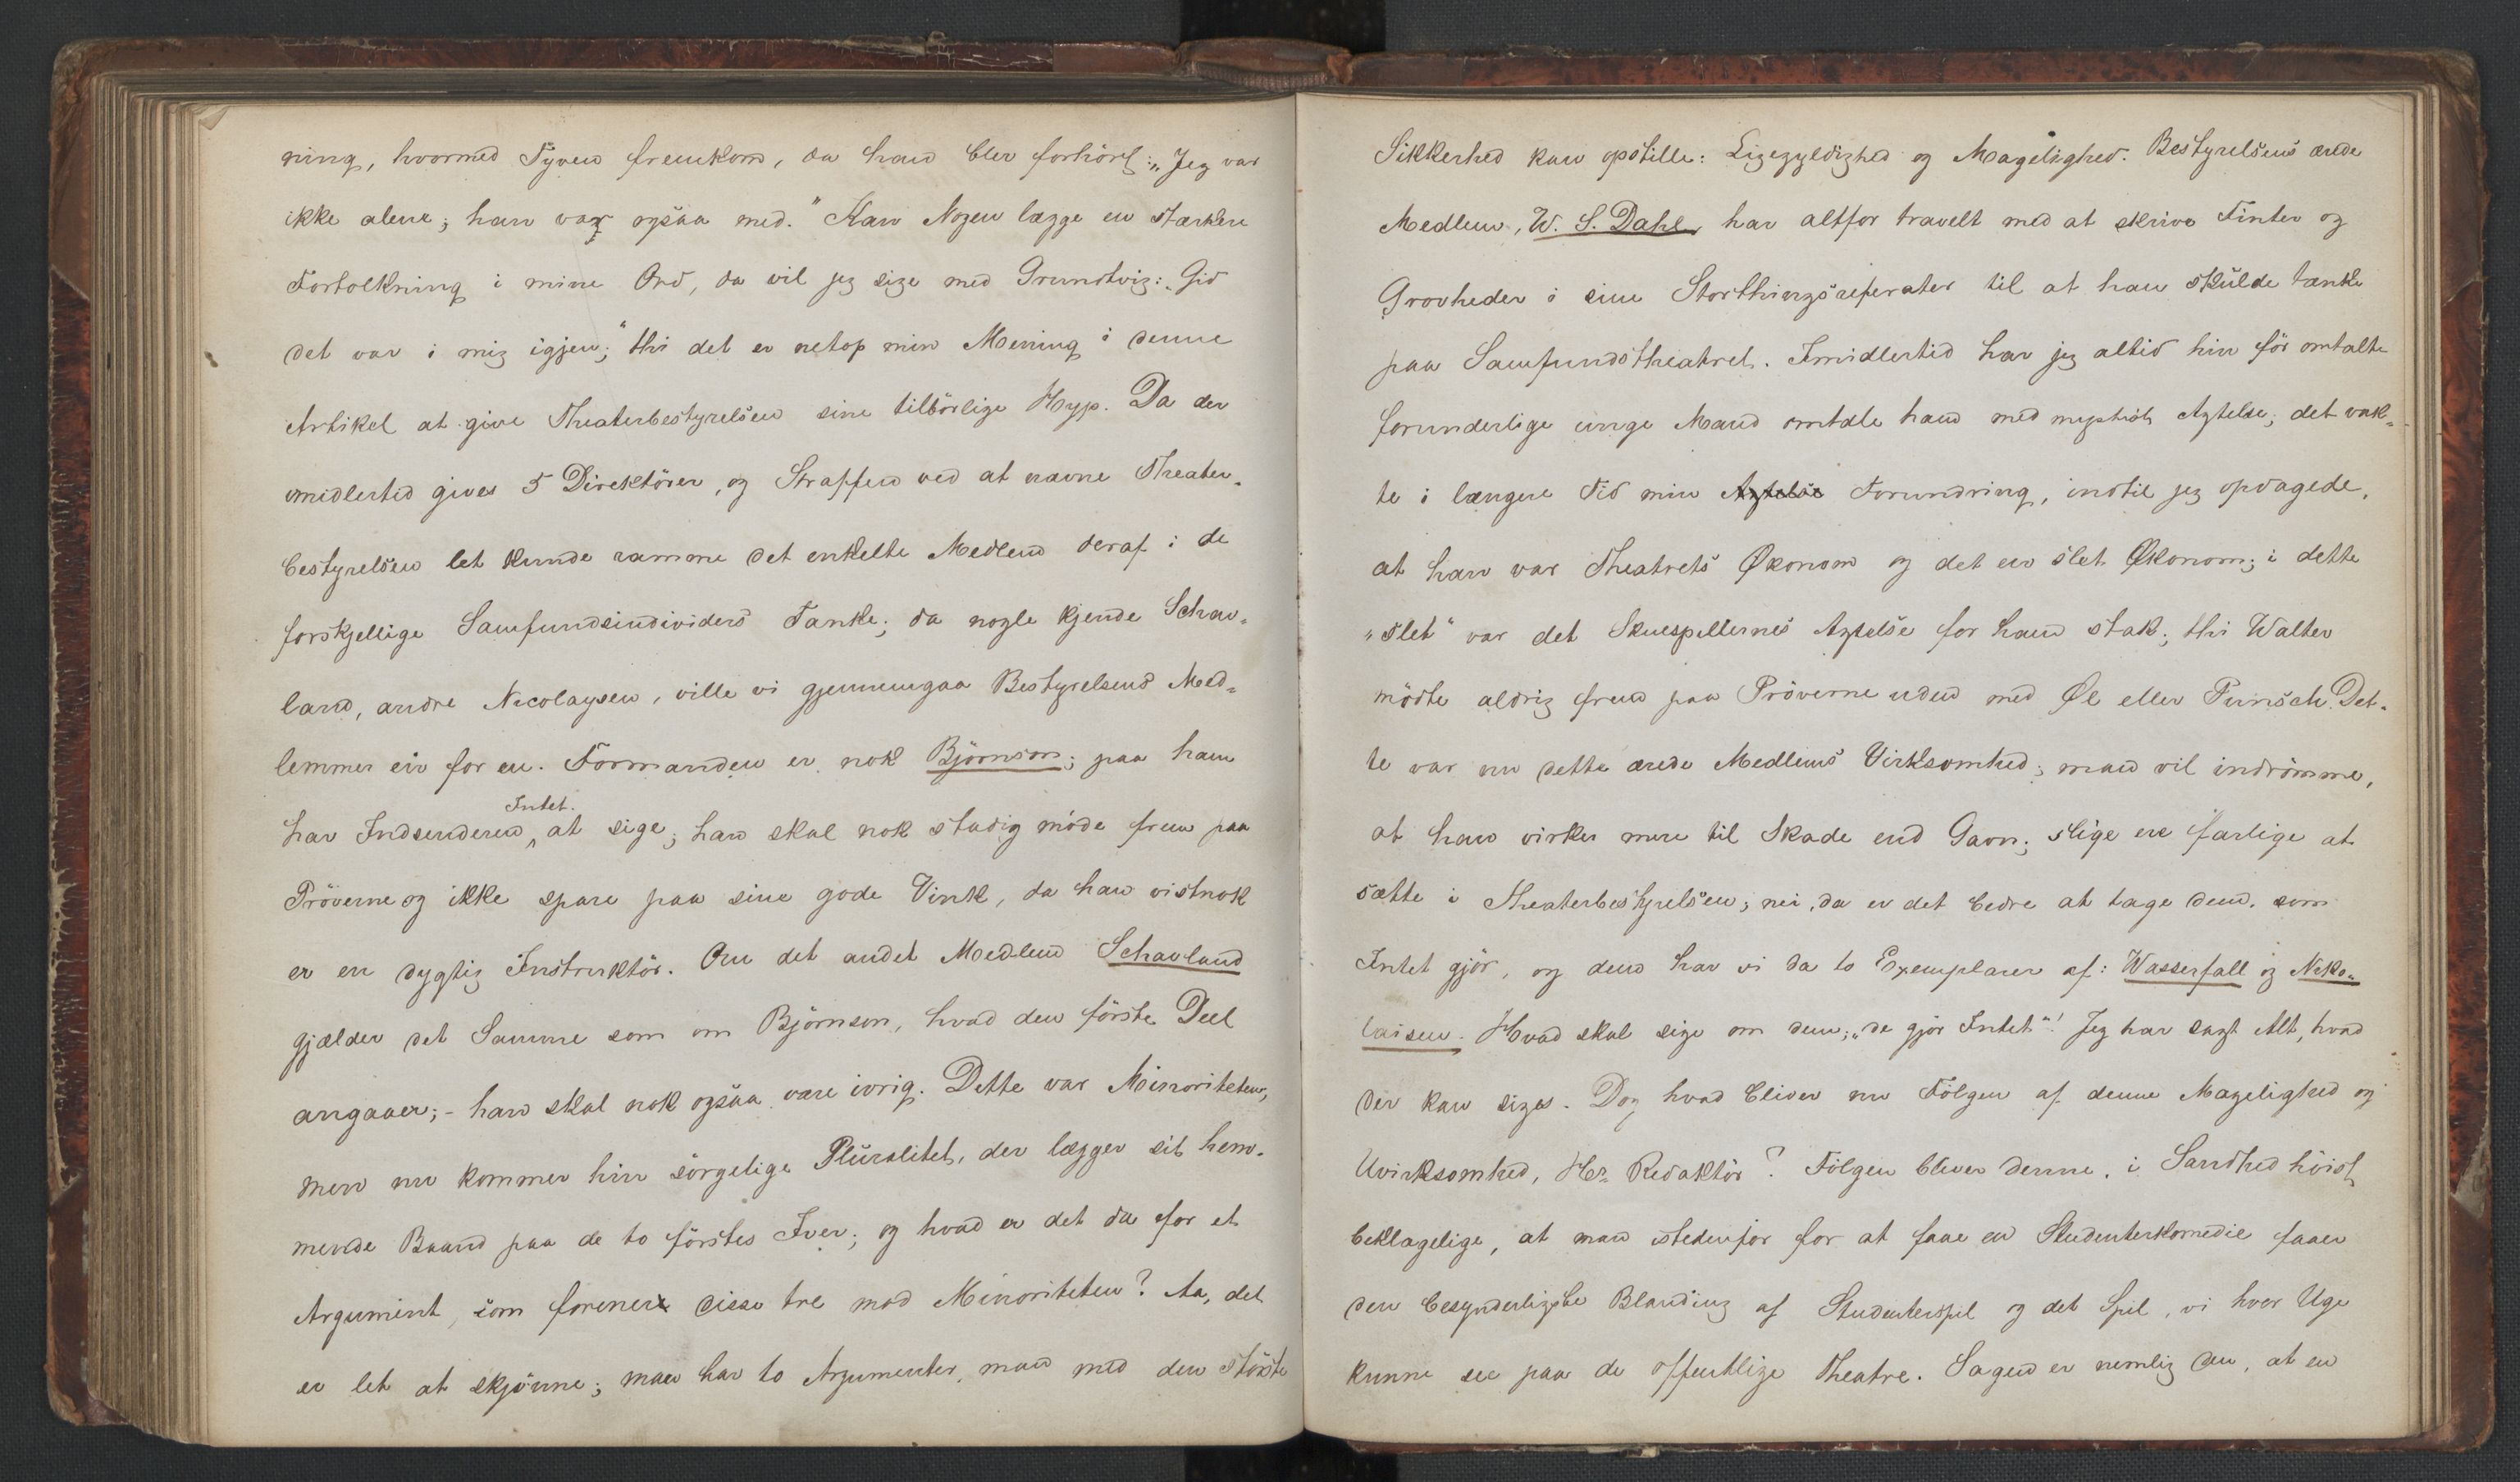 ning, hvormed Tyven fremkom, da han blev forhört: „Jeg var
ikke alene; han var ogsaa med." Kan Nogen lægge en stærkere
Fortolkning i mine Ord, da vil jeg sige med Grundtvig: „Gid
det var i mig igjen;" thi det er netop min Mening i denne
Artikel at give Theaterbestyrelsen sine tilbörlige Hyp. Da der
imidlertid gives 5 Direktörer, og Straffen ved at nævne Theater-
bestyrelsen let kunde ramme det enkelte Medlem deraf i de
forskjellige Samfundsindividers Tanke; da nogle kjende Schav-
land, andre Nicolaysen, ville vi gjennemgaa Bestyrelsens Med-
lemmer en for en. Formanden er nok Björnson; paa ham
har Indsenderen Intet at sige; han skal nok stadig möde frem paa
Pröverne og ikke spare paa sine gode Vink, da han vistnok
er en dygtig Instruktör. Om det andet Medlem Schavland
gjælder det Samme som om Björnson, hvad den förste Deel
angaaer; - han skal nok ogsaa være ivrig. Dette var Minoriteten,
men nu kommer hin sörgelige Pluralitet, der lægger sit hem-
mende Baand paa de to förstes Iver; og hvad er det da for et
Argument, som forener disse tre mod Minoriteten? Aa, det
er let at skjönne; man har to Argumenter, man med den störste
Sikkerhed kan opstille: Ligegyldighed og Magelighed. Bestyrelsens ærede
Medlem, W. S. Dahl, har altfor travelt med at skrive Finter og
Grovheder i sine Storthingsreferater til at han skulde tænke
paa Samfundstheatret. Imidlertid har jeg altid hin för omtalte
forunderlige unge Mand omtale ham med mystisk Agtelse; det vak-
te i længere Tid min Agtelse Forundring, indtil jeg opdagede,
at han var Theatrets Økonom og det en slet Økonom; i dette
„slet" var det Skuespillernes Agtelse for ham stak; thi Walter
mödte aldrig frem paa Pröverne uden med Øl eller Punsch. Det-
te var nu dette ærede Medlems Virksomhed; man vil indrömme,
at han virker mere til Skade end Gavn; slige ere farlige at
sætte i Theaterbestyrelsen; nei, da er det bedre at tage dem, som
Intet gjör, og dem har vi da to Exemplarer af: Wasserfall og Niko-
laisen. Hvad skal sige om dem; „de gjör Intet"! Jeg har sagt Alt, hvad
der kan siges. Dog hvad bliver nu Fölgen af denne Magelighed og
Uvirksomhed, Hr. Redaktör? Fölgen bliver denne, i Sandhed höist
beklagelige, at man istedenfor for at faae en Studenterkomedie faaer
den besynderligste Blanding af Studenterspil og det Spil, vi hver Uge
kunne see paa de offentlige Theatre. Sagen er nemlig den, at en